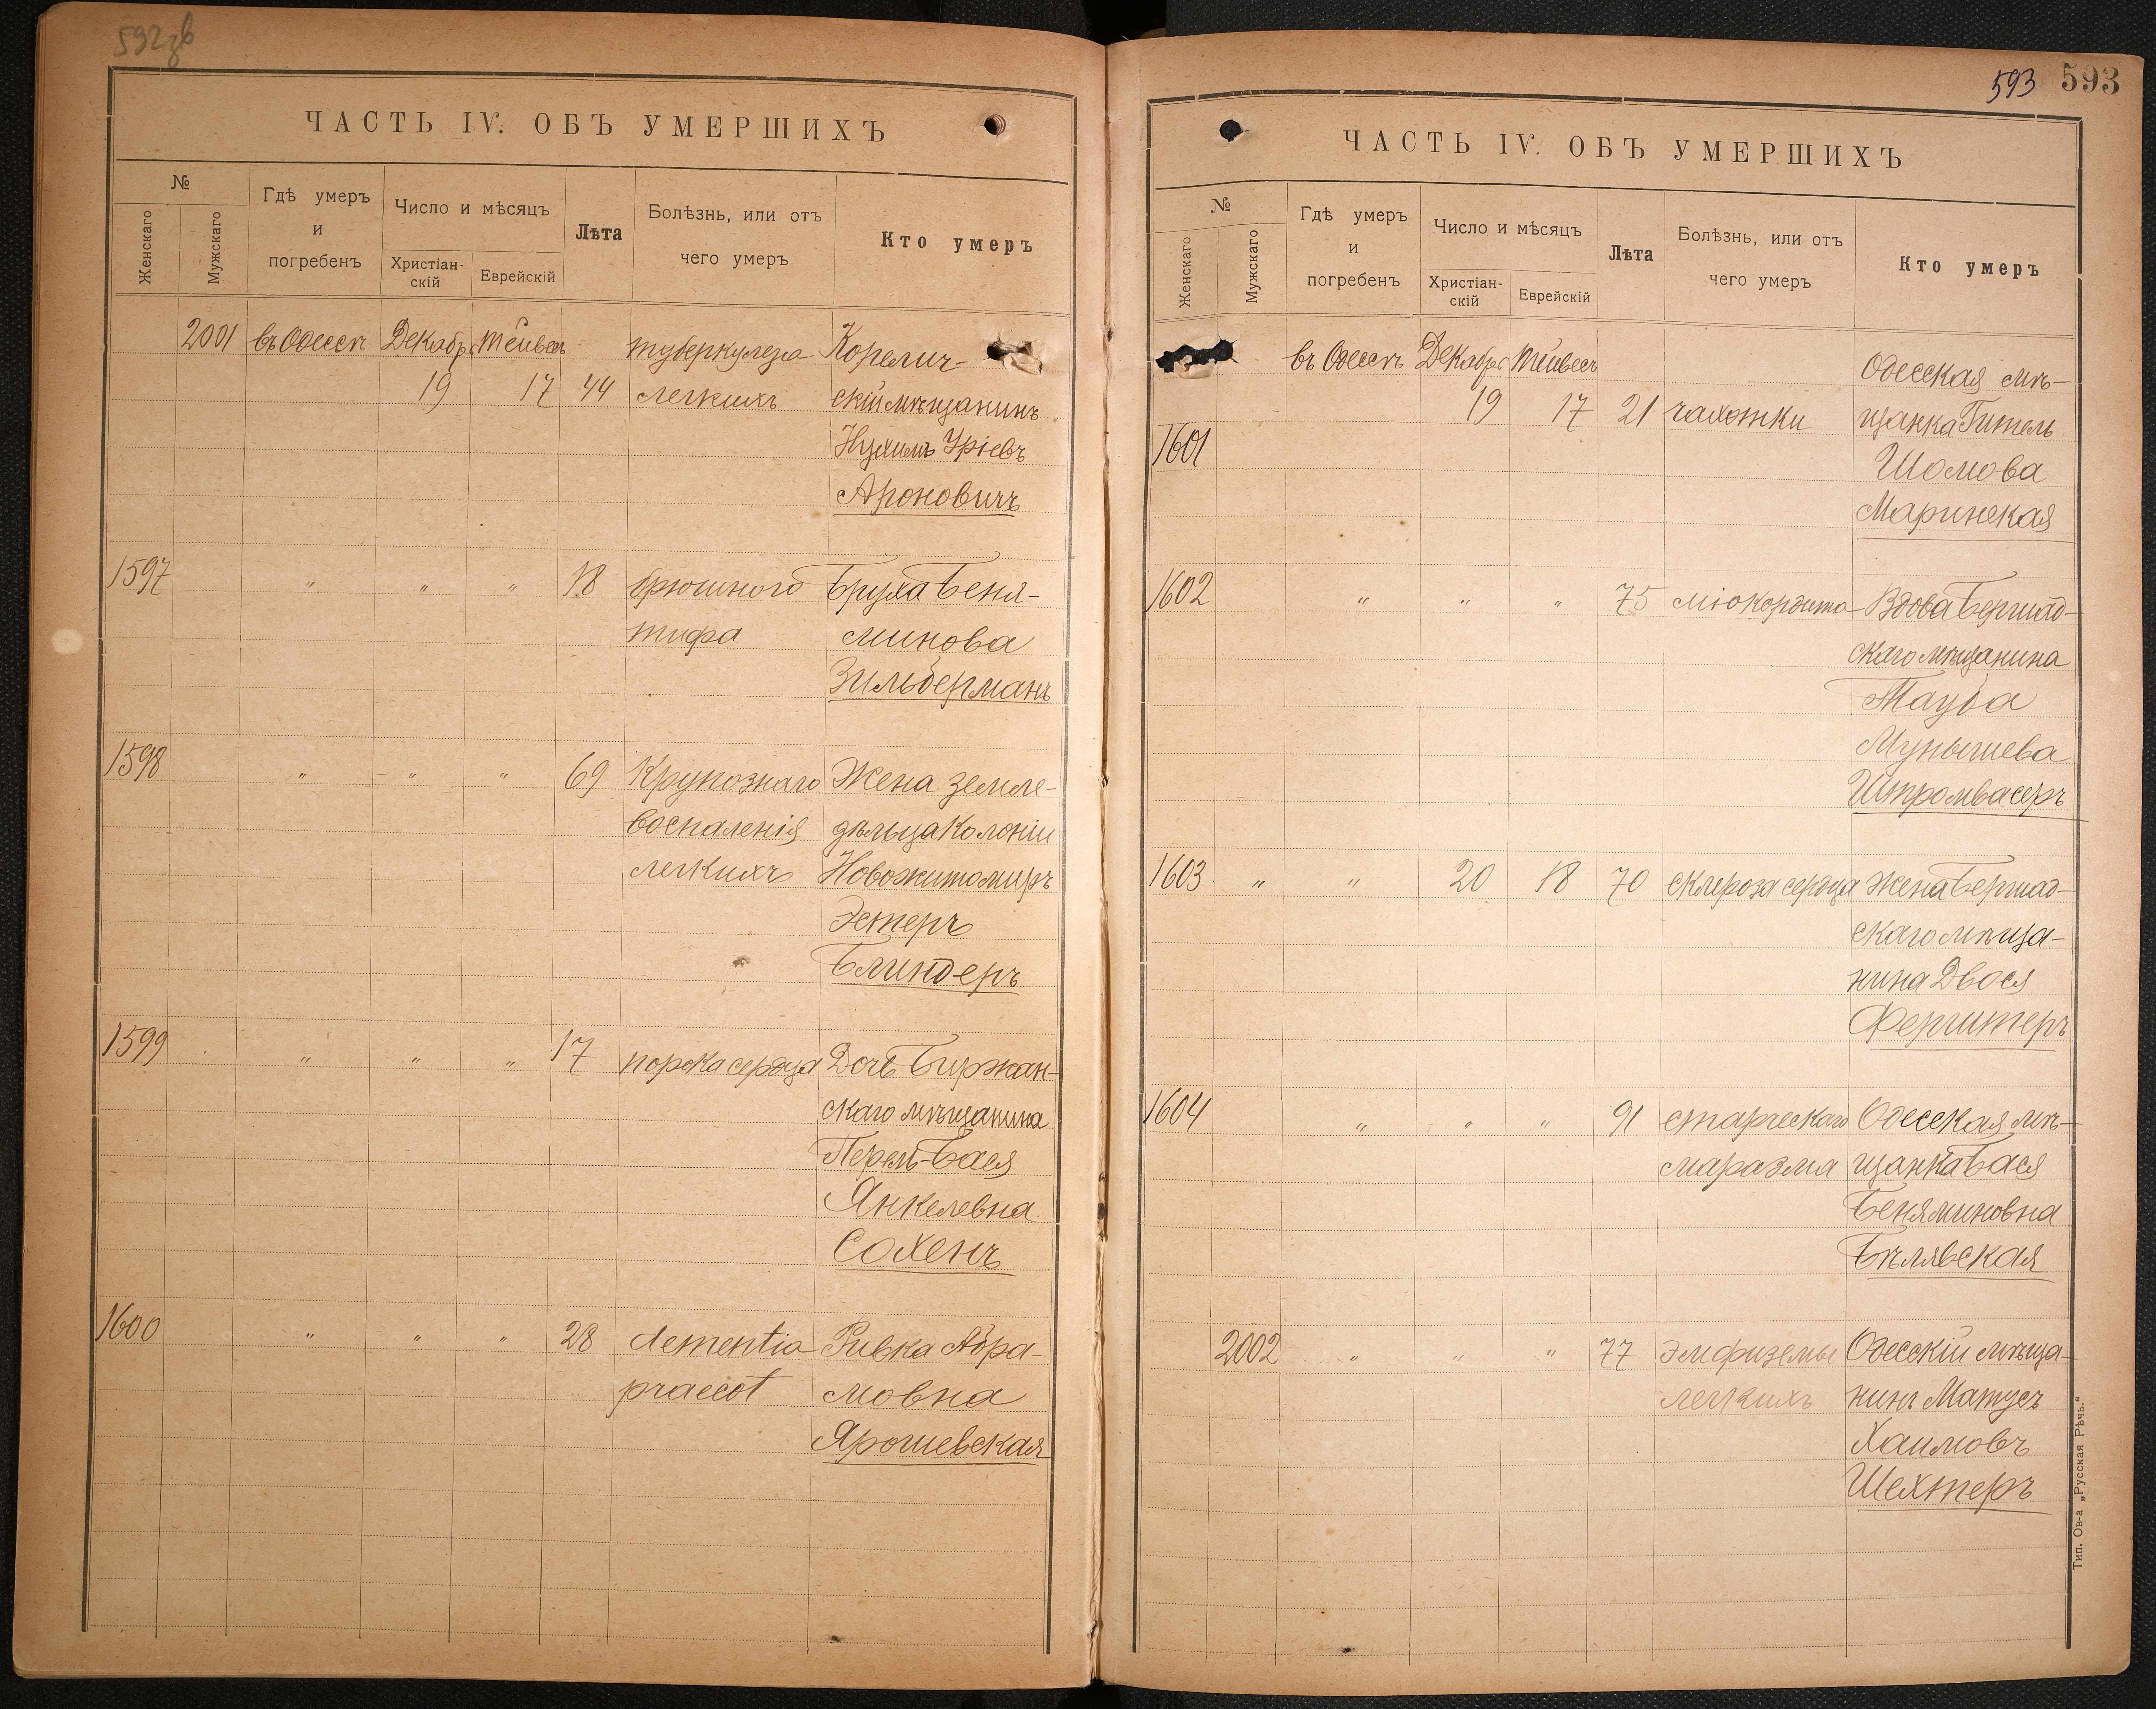 592 об
ЧАСТЬ IV. ОБЪ УМЕРШИХЪ
№
Женскаго
Мужскаго
Гдѣ умеръ
и
погребенъ
Число и мѣсяцъ
Христіан-
скій
Еврейскій
Лѣта
Болѣзнь, или отъ
чего умеръ
Кто умеръ
2001 въ Одессѣ Декабрь Тейвесъ туберкулеза Корелич-
19 17 44 легкихъ скій мѣщанинъ
Нухимъ Уріевъ
Ароновичъ
1597 " " " 18 брюшного Бруха Беня-
тифа минова
Зильберманъ
1598 " " " 69 Крупознаго Жена земле-
воспаленія дѣльца Колоніи
легкихъ Новожитомиръ
Эстеръ
Блиндеръ
1599 " " " 17 порока сердца Дочь Биржан-
скаго мѣщанина
Перель-Бася
Янкелевна
Сохенъ
1600 " " " 28 dementia Ривка Абра-
praecot мовна
Ярошевская
593 593
ЧАСТЬ IV. ОБЪ УМЕРШИХЪ
№
Женскаго
Мужскаго
Гдѣ умеръ
и
погребенъ
Число и мѣсяцъ
Христіан-
скій
Еврейскій
Лѣта
Болѣзнь, или отъ
чего умеръ
Кто умеръ
въ Одессѣ Декабрь Тейвесъ Одесская мѣ-
19 17 21 чахотки щанка Гитель
1601 Шомова
Маринская
1602 " " " 75 міокардита Вдова Бершад-
скаго мѣщанина
Тауба
Мунышева
Штромвасеръ
1603 " " 20 18 70 склероза сердца Жена Бершад-
скаго мѣща-
нина Двося
Ферштеръ
1604 " " " 91 старческаго Одесская мѣ-
маразма щанка Бася
Беняминовна
Бѣлявская
2002 " " " 77 эмфиземы Одесскій мѣща-
легкихъ нинъ Матусъ
Хаимовъ
Шехтеръ
Тип. Ов-а „Русская Рѣчь."